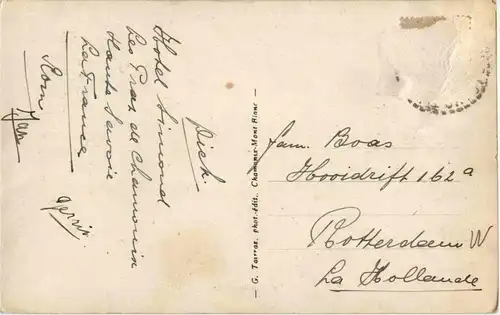 Dick.
Hotel Simond
Les Praz de Chamonix
Haute Savoie
La France
G. Tairraz, phot.-édit. Chamonix-Mont Blanc
Fam. Boas
Hooidrift 162a
Rotterdam W
La Hollande